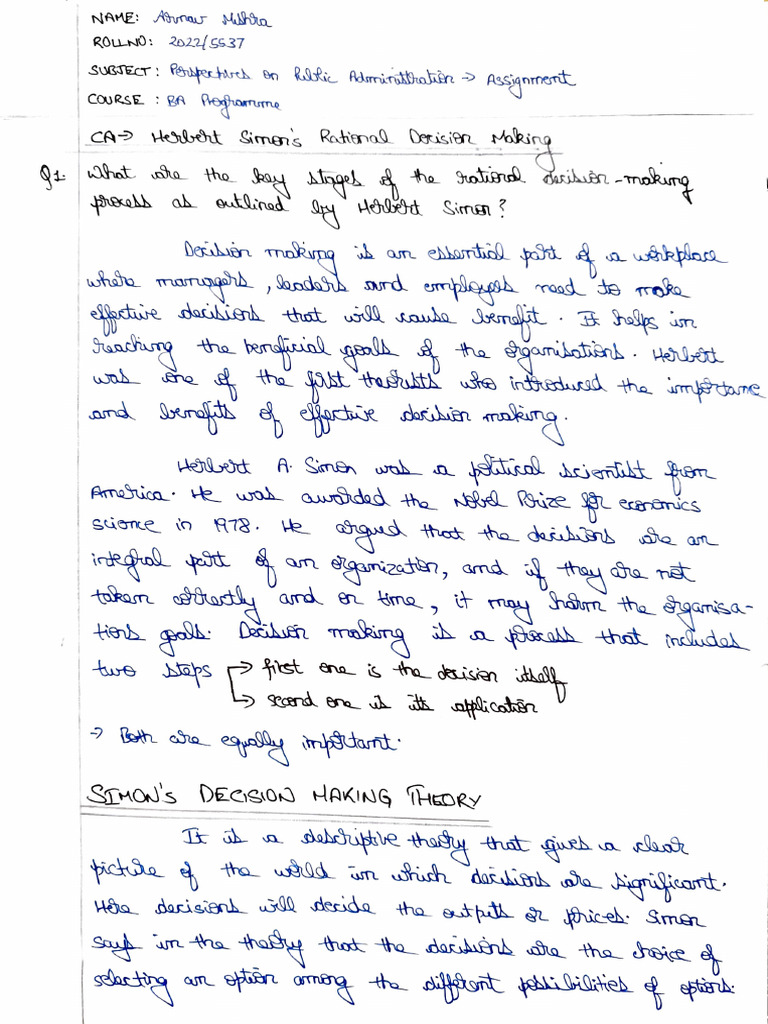 NAME: Arnav Mishra
ROLLNO: 2022/5537
SUBJECT: Perspectives on Public Administration → Assignment
COURSE : BA Programme
CA→ Herbert Simon's Rational Decision Making
Q1. What are the key stages of the rational decision-making
process as outlined by Herbert Simon?
Decision making is an essential part of a workplace
where managers, leaders and employees need to make
effective decisions that will cause benefit. It helps in
reaching the beneficial goals of the organisations. Herbert
was one of the first theorists who introduced the importance
and benefits of effective decision making.
Herbert A. Simon was a political scientist from
America. He was awarded the Nobel Prize for economics
science in 1978. He argued that the decisions are an
integral part of an organization, and if they are not
taken correctly and on time, it may harm the organisa-
tions goals. Decision making is a process that includes
two steps → first one is the decision itself
→ second one is its application
→ Both are equally important.
SIMON'S DECISION MAKING THEORY
It is a descriptive theory that gives a clear
picture of the world in which decisions are significant.
Here decisions will decide the outputs or prices. Simon
says in the theory that the decisions are the choice of
selecting an option among the different possibilities of options.